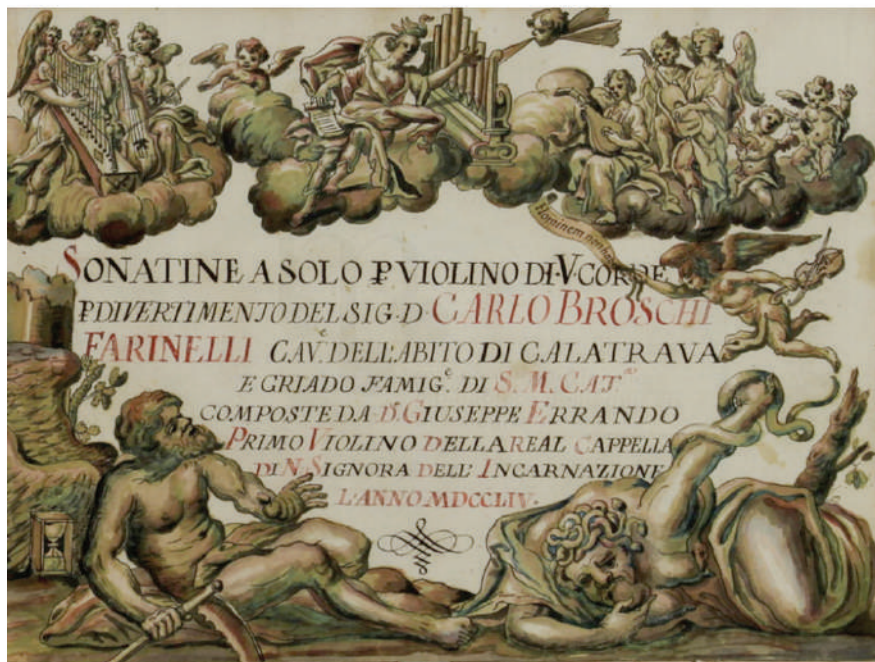 Hominem
SONATINE A SOLO P VIOLINO DI·V CORDE
P DIVERTIMENTO DEL SIG·D·CARLO BROSCHI
FARINELLI CAVᵉ. DELL'ABITO DI CALATRAVA
E GRIADO FAMIGᵉ. DI S. M. CAT.ᶜᵃ
COMPOSTE DA·Dⁿ. GIUSEPPE ERRANDO
PRIMO VIOLINO DELLA REAL CAPPELLA
DI N. SIGNORA DELL' INCARNAZIONE
L'ANNO MDCCLIV·